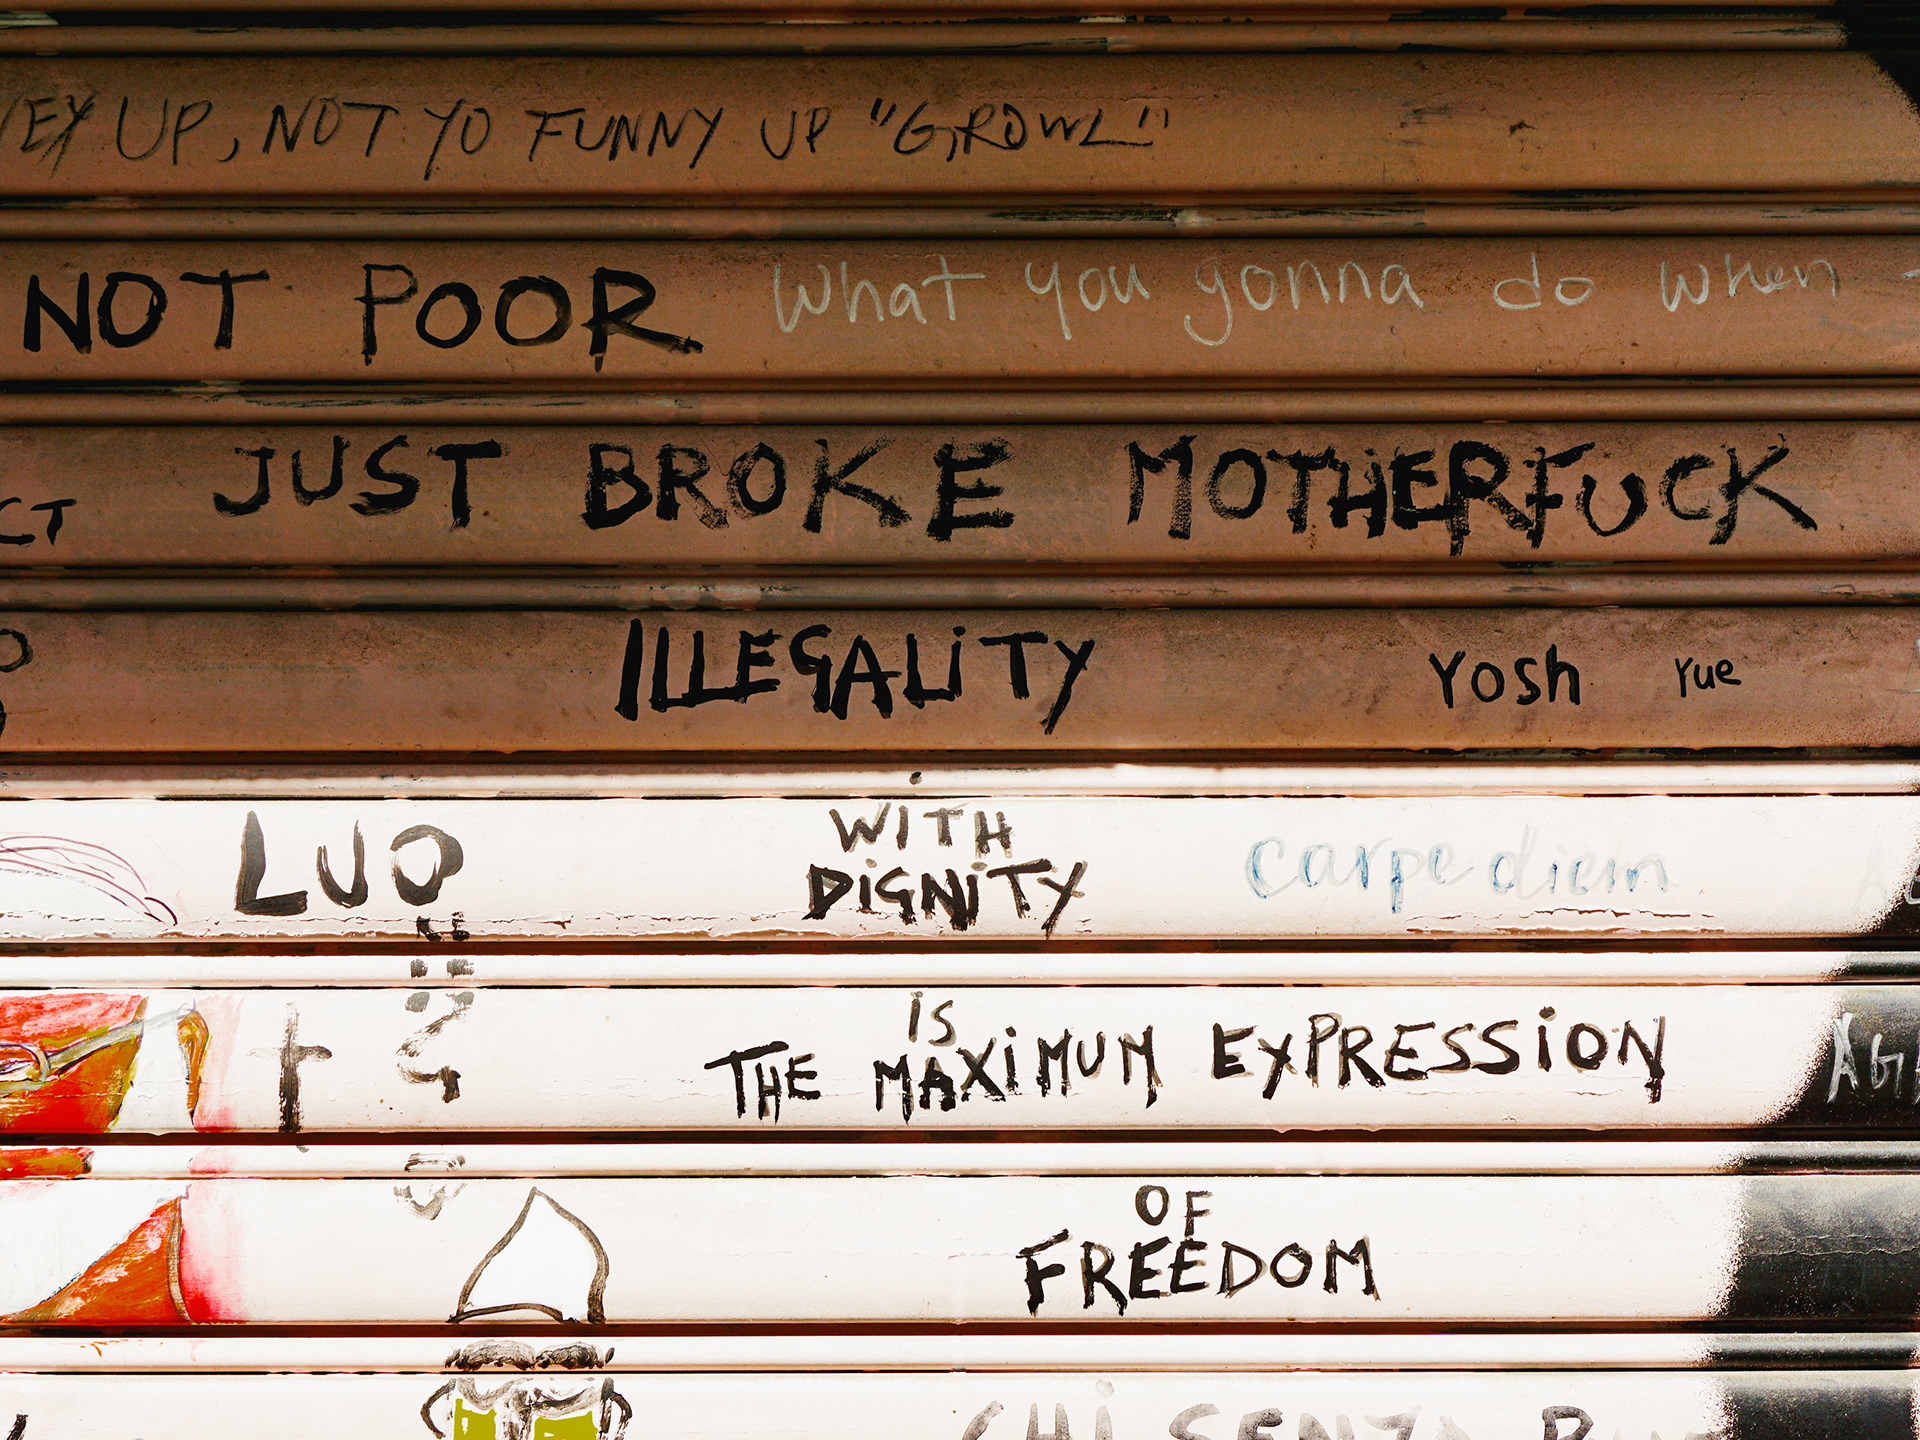 UP, NOT YO FUNNY UP "GROWL"
NOT POOR
What you gonna do when
JUST BROKE MOTHERFUCK
ILLEGALiTY
Yosh Yue
LUO
WITH
DiGNiTY
carpe diem
iS
THE MAXiMUM EXPRESSiON
OF
FREEDOM
CHi SENZA